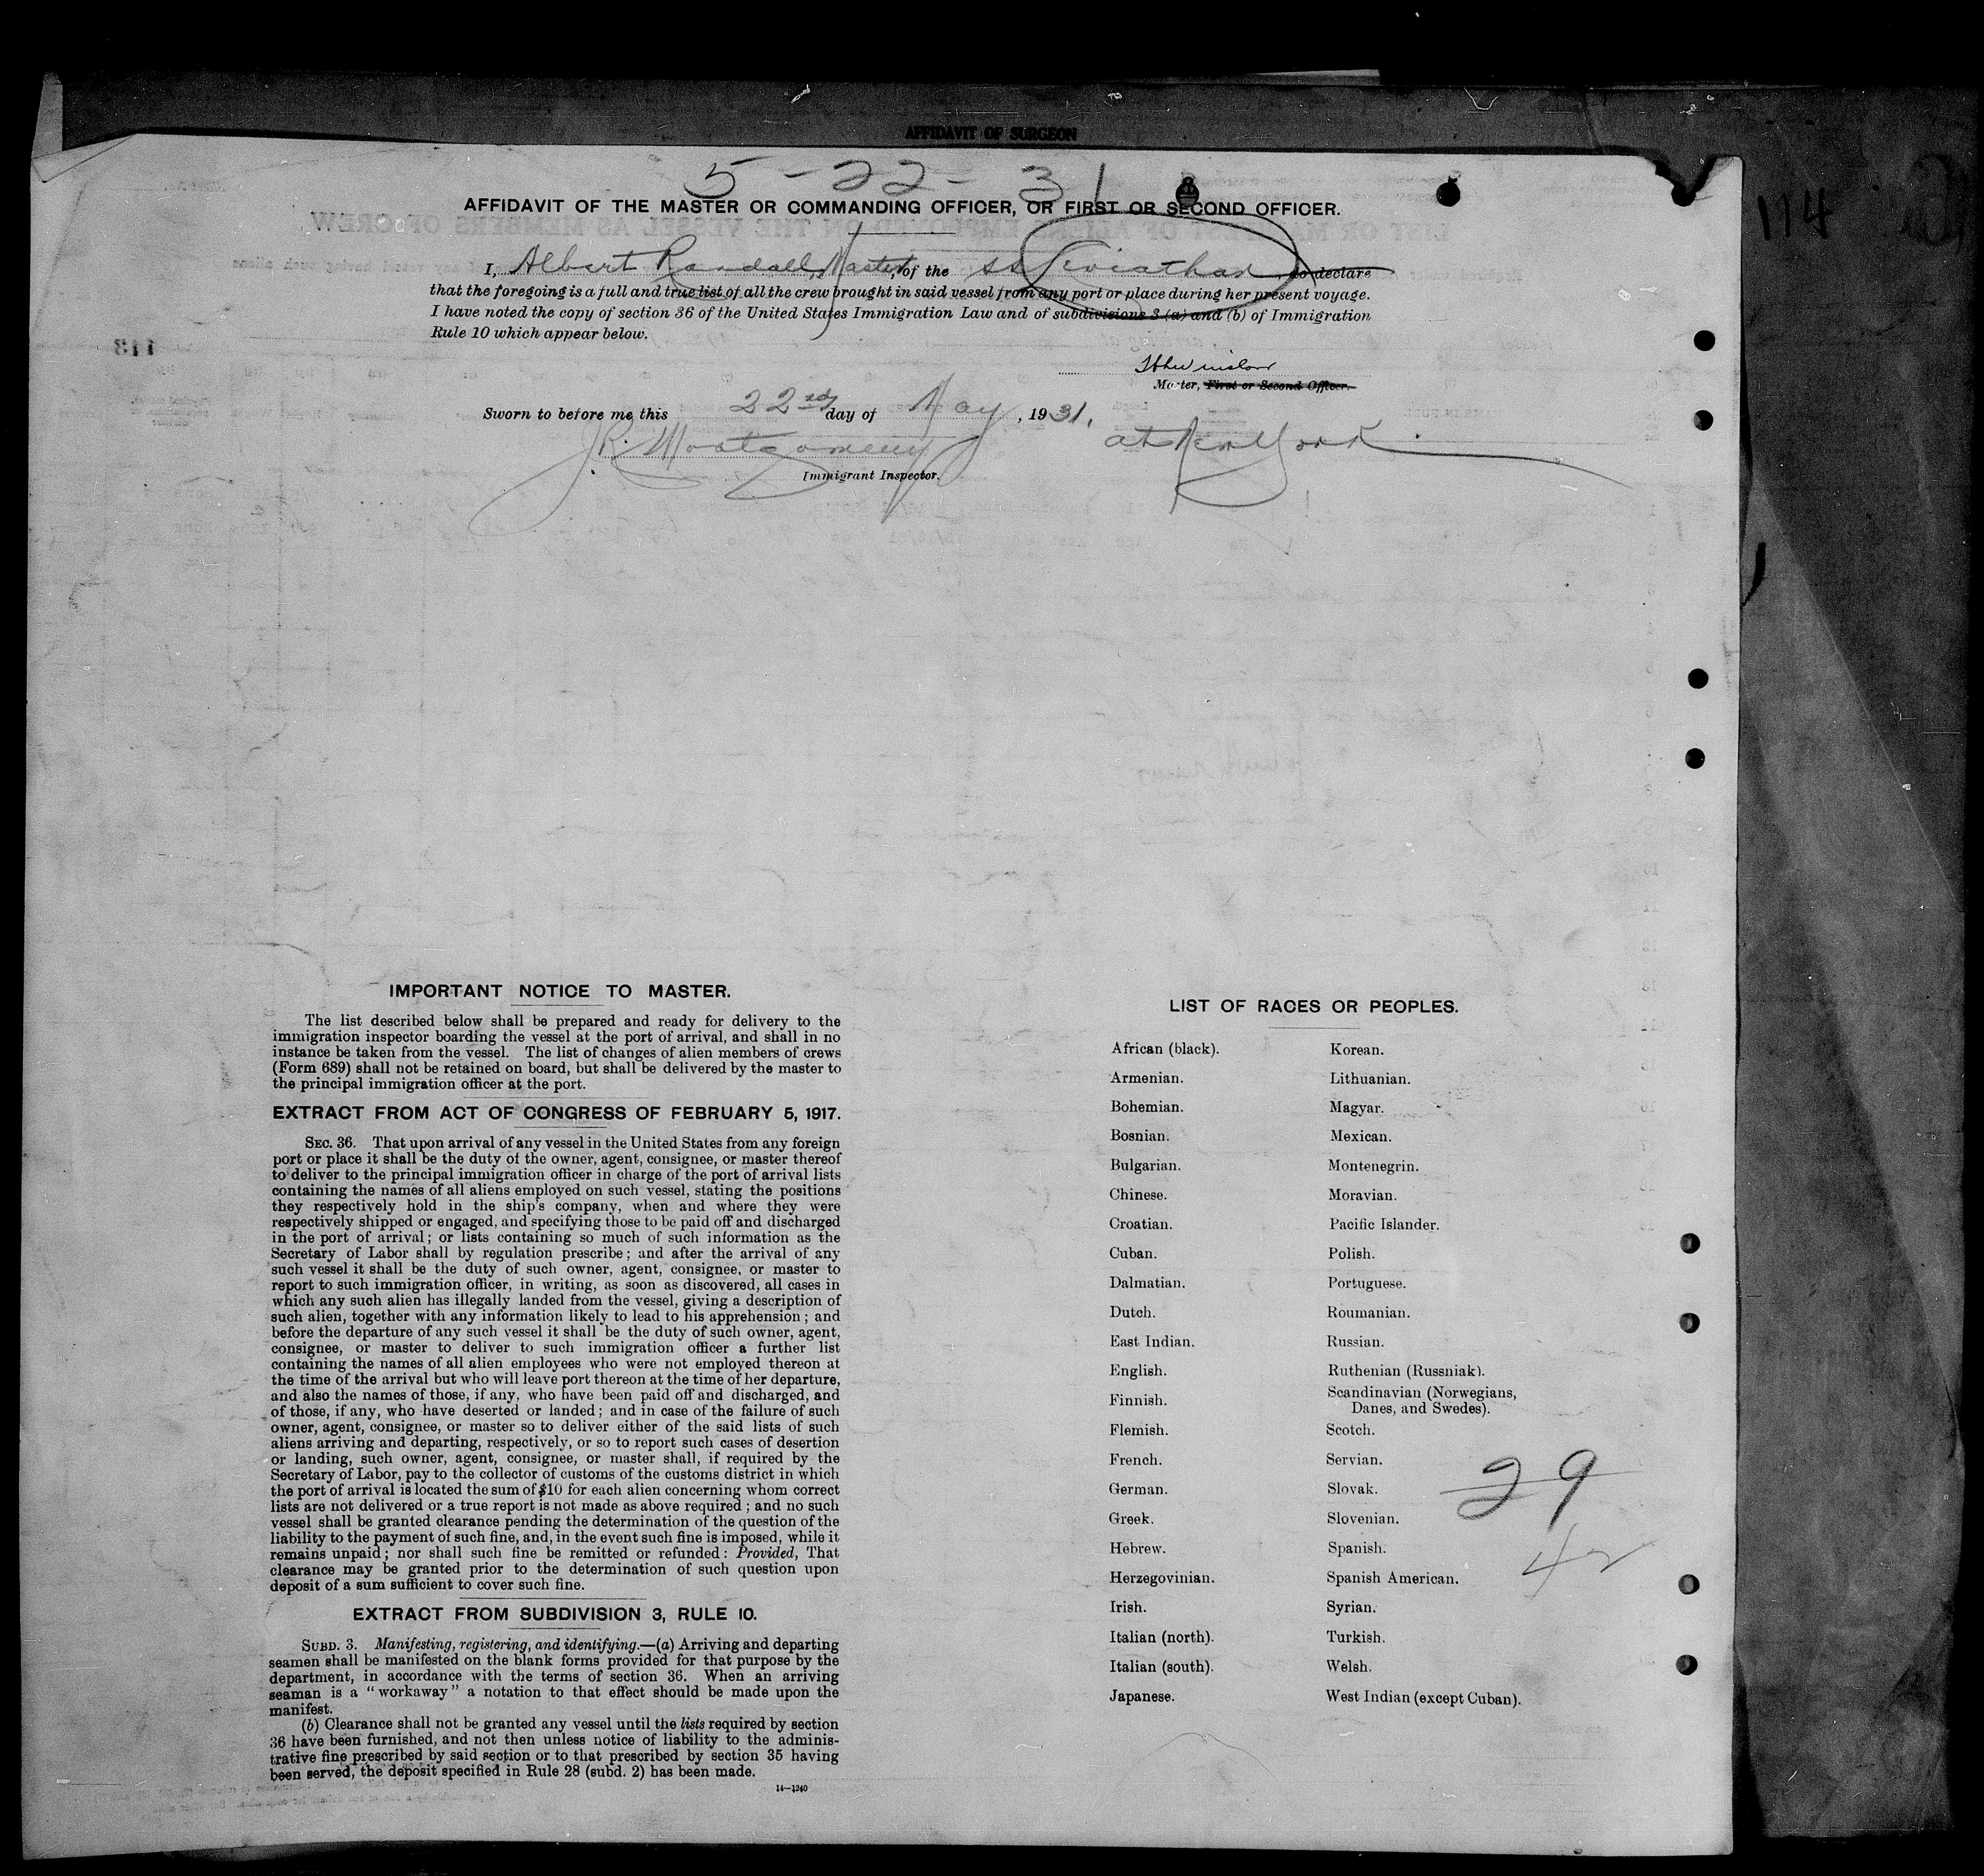 AFFIDAVIT OF SURGEON
5-22-31
AFFIDAVIT OF THE MASTER OR COMMANDING OFFICER, OR FIRST OR SECOND OFFICER.
114
I, Albert Randall, Master, of the SS Leviathan, do declare
that the foregoing is a full and true list of all the crew brought in said vessel from any port or place during her present voyage.
I have noted the copy of section 36 of the United States Immigration Law and of subdivisions 3 (a) and (b) of Immigration
Rule 10 which appear below.
113
Master, First or Second Officer.
Sworn to before me this 22nd day of May, 1931.
J.R. Montgomery at New York
Immigrant Inspector.
IMPORTANT NOTICE TO MASTER.
The list described below shall be prepared and ready for delivery to the
immigration inspector boarding the vessel at the port of arrival, and shall in no
instance be taken from the vessel. The list of changes of alien members of crews
(Form 689) shall not be retained on board, but shall be delivered by the master to
the principal immigration officer at the port.
EXTRACT FROM ACT OF CONGRESS OF FEBRUARY 5, 1917.
SEC. 36. That upon arrival of any vessel in the United States from any foreign
port or place it shall be the duty of the owner, agent, consignee, or master thereof
to deliver to the principal immigration officer in charge of the port of arrival lists
containing the names of all aliens employed on such vessel, stating the positions
they respectively hold in the ship's company, when and where they were
respectively shipped or engaged, and specifying those to be paid off and discharged
in the port of arrival; or lists containing so much of such information as the
Secretary of Labor shall by regulation prescribe; and after the arrival of any
such vessel it shall be the duty of such owner, agent, consignee, or master to
report to such immigration officer, in writing, as soon as discovered, all cases in
which any such alien has illegally landed from the vessel, giving a description of
such alien, together with any information likely to lead to his apprehension; and
before the departure of any such vessel it shall be the duty of such owner, agent,
consignee, or master to deliver to such immigration officer a further list
containing the names of all alien employees who were not employed thereon at
the time of the arrival but who will leave port thereon at the time of her departure,
and also the names of those, if any, who have been paid off and discharged, and
of those, if any, who have deserted or landed; and in case of the failure of such
owner, agent, consignee, or master so to deliver either of the said lists of such
aliens arriving and departing, respectively, or so to report such cases of desertion
or landing, such owner, agent, consignee, or master shall, if required by the
Secretary of Labor, pay to the collector of customs of the customs district in which
the port of arrival is located the sum of $10 for each alien concerning whom correct
lists are not delivered or a true report is not made as above required; and no such
vessel shall be granted clearance pending the determination of the question of the
liability to the payment of such fine, and, in the event such fine is imposed, while it
remains unpaid; nor shall such fine be remitted or refunded: Provided, That
clearance may be granted prior to the determination of such question upon
deposit of a sum sufficient to cover such fine.
EXTRACT FROM SUBDIVISION 3, RULE 10.
SUBD. 3. Manifesting, registering, and identifying.—(a) Arriving and departing
seamen shall be manifested on the blank forms provided for that purpose by the
department, in accordance with the terms of section 36. When an arriving
seaman is a "workaway" a notation to that effect should be made upon the
manifest.
(b) Clearance shall not be granted any vessel until the lists required by section
36 have been furnished, and not then unless notice of liability to the adminis-
trative fine prescribed by said section or to that prescribed by section 35 having
been served, the deposit specified in Rule 28 (subd. 2) has been made.
14—1240
LIST OF RACES OR PEOPLES.
African (black).
Armenian.
Bohemian.
Bosnian.
Bulgarian.
Chinese.
Croatian.
Cuban.
Dalmatian.
Dutch.
East Indian.
English.
Finnish.
Flemish.
French.
German.
Greek.
Hebrew.
Herzegovinian.
Irish.
Italian (north).
Italian (south).
Japanese.
Korean.
Lithuanian.
Magyar.
Mexican.
Montenegrin.
Moravian.
Pacific Islander.
Polish.
Portuguese.
Roumanian.
Russian.
Ruthenian (Russniak).
Scandinavian (Norwegians,
Danes, and Swedes).
Scotch.
Servian.
Slovak.
Slovenian.
Spanish.
Spanish American.
Syrian.
Turkish.
Welsh.
West Indian (except Cuban).
29